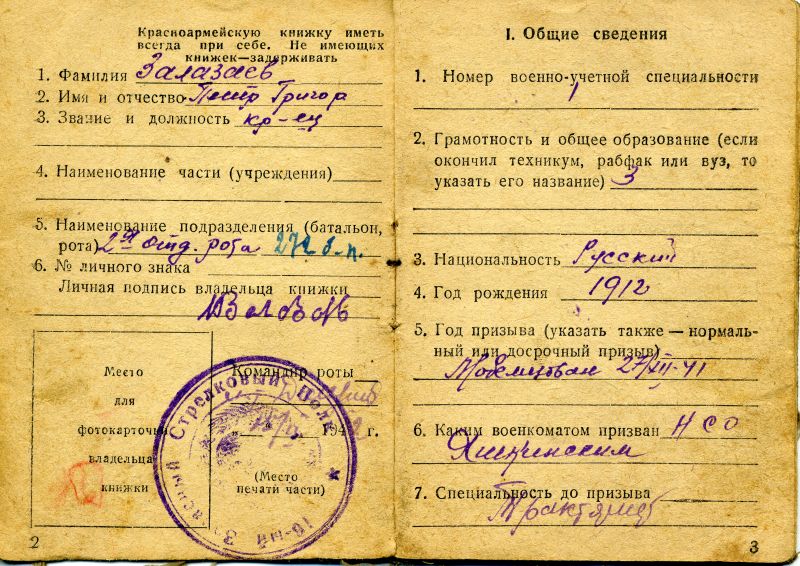 Красноармейскую книжку иметь
всегда при себе. Не имеющих
книжек—задерживать
1. Фамилия Залазаев
2. Имя и отчество Петр Григор
3. Звание и должность кр-ец
4. Наименование части (учреждения)
5. Наименование подразделения (батальон,
рота) 2я отд. рота 272 б.п.
6. № личного знака
Личная подпись владельца книжки
Место
для
фотокарточки
владельца
книжки
Командир роты
194 г.
(Место
печати части)
16-ый Запасный Стрелковый Полк
2
I. Общие сведения
1. Номер военно-учетной специальности
1
2. Грамотность и общее образование (если
окончил техникум, рабфак или вуз, то
указать его название) 3
3. Национальность Русский
4. Год рождения 1912
5. Год призыва (указать также — нормаль-
ный или досрочный призыв)
Мобилизован 27/XII-41
6. Каким военкоматом призван НСО
7. Специальность до призыва
Тракторист
3